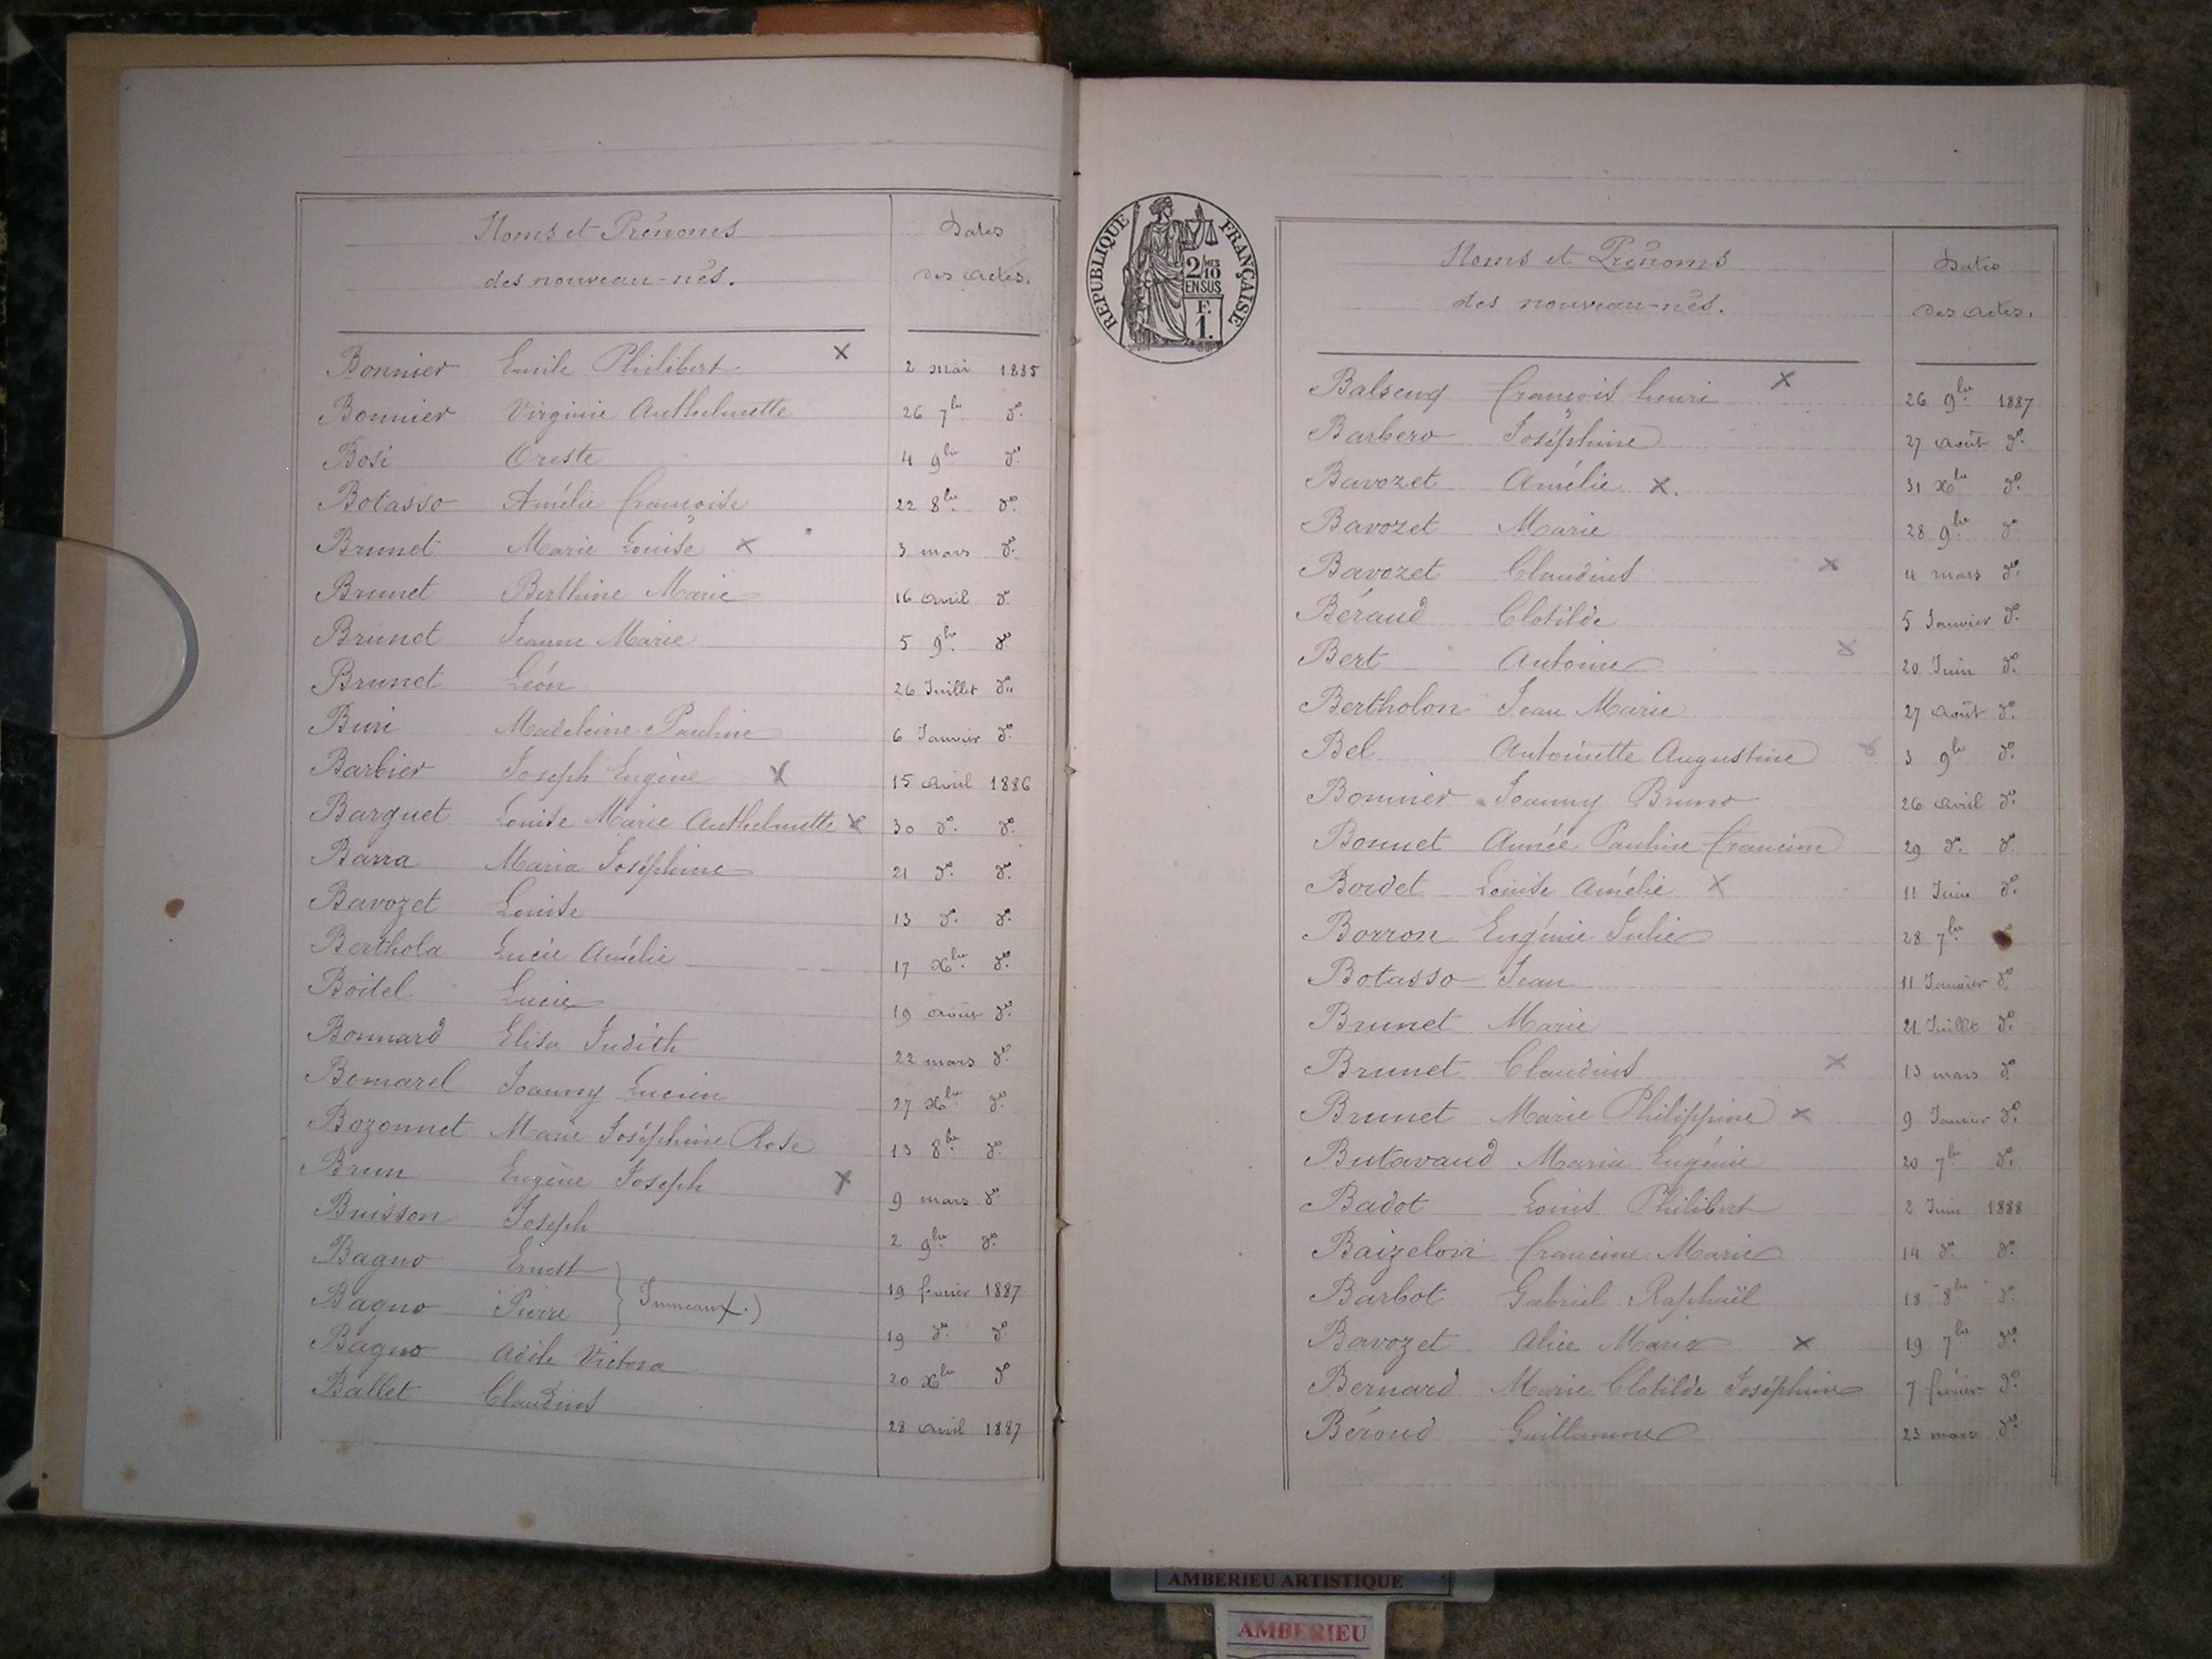 Noms et Prénoms
des nouveau-nés.
Dates
des actes.
Bonnier Emile Philibert x 2 mai 1885
Bonnier Virginie Anthelmette 26 7bre do.
Bosi Oreste 4 9bre do.
Botasso Amélie Françoise 22 8bre do.
Brunet Marie Louise x 3 mars do.
Brunet Berthine Marie 16 avril do.
Brunet Jeanne Marie 5 9bre do.
Brunet Léon 26 Juillet do.
Buri Madeleine Pauline 6 Janvier do.
Barbier Joseph Eugène x 15 avril 1886
Barguet Louise Marie Anthelmette x 30 do. do.
Barra Maria Joséphine 21 do. do.
Bavozet Louise 13 do. do.
Berthola Lucie Amélie 17 Xbre do.
Boitel Lucie 19 août do.
Bonnard Elisa Judith 22 mars do.
Bomarel Joanny Lucien 27 Xbre do.
Bozonnet Marie Joséphine Rose 13 8bre do.
Brun Eugène Joseph x 9 mars do.
Buisson Joseph 2 9bre do.
Bagno Ernest 19 février 1887
Bagno Pierre } Jumeaux.) 19 do. do.
Bagno Adèle Victora 20 Xbre do
Ballet Claudius 28 avril 1887
REPUBLIQUE FRANÇAISE
2/10 MES
EN SUS
F.
1.
Noms et Prénoms
des nouveau-nés.
Dates
des actes.
François henri x 26 9bre 1887
Barbero Joséphine 27 août do.
Bavozet Amélie x. 31 Xbre do.
Bavozet Marie 28 9bre do
Bavozet Claudius x 4 mars do.
Béraud Clotilde 5 Janvier do.
Bert Antoine x 20 Juin do.
Bertholon Jean Marie 27 août do.
Bel Antoinette Augustine x 3 9bre do.
Bonnier Joanny Bruno 26 avril do.
Bonnet Aimée Pauline Francine 29 do. do
Bordet Louise Amélie x 11 Juin do.
Borron Eugénie Julie 28 7bre
Botasso Jean 11 Janvier do.
Brunet Marie 21 Juillet do.
Brunet Claudius x 13 mars do.
Brunet Marie Philippine x 9 Janvier do.
Butavand Maria Eugénie 20 7bre do.
Badot Louis Philibert 2 Juin 1888
Baizelon Francine Marie 14 do do.
Barbot Gabriel Raphaël 18 8bre do.
Bavozet Alice Marie x 19 7bre do.
Bernard Marie Clotilde Joséphine 7 février do.
Béroud Guillaume 23 mars do.
AMBERIEU ARTISTIQUE
AMBERIEU